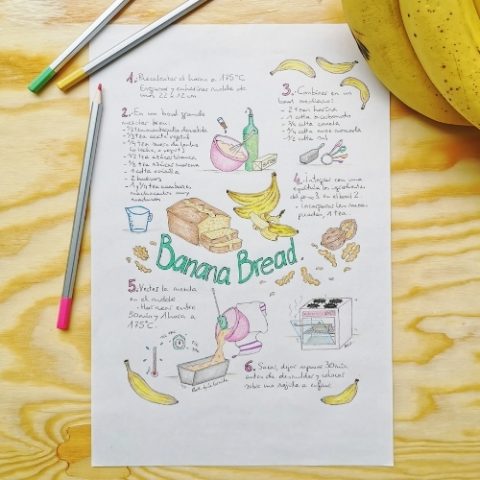 1. Precalentar el horno a 175°C
Engrasar y enharinar molde de
unos 22 x 12 cm
2. En un bowl grande
mezclar bien:
- 1/2 tza mantequilla derretida
- 1/2 tza aceite vegetal
- 1/4 tza
- 1/2 tza azúcar blanca
- 1/2 tza azúcar morena
- 1 cdta vainilla
- 2 huevos
- 1 y 1/2 tza
muy
maduros
3. Combinar en un
bowl mediano:
- 2 tza harina
- 1 cdta bicarbonato
- 3/4 canela
- 1/4 cdta nuez moscada
- 1/2 cdta sal
4. Integrar con una
espátula los ingredientes
del paso 3 en el bowl 2.
- Incorporar las nueces
picadas, 1 tza
Banana Bread
5. Verter la mezcla
en el molde
- Hornear entre
50 min y 1 hora a
175°C.
6. Sacar, dejar reposar 30 min
antes de desmoldar y colocar
sobre una rejilla a enfriar